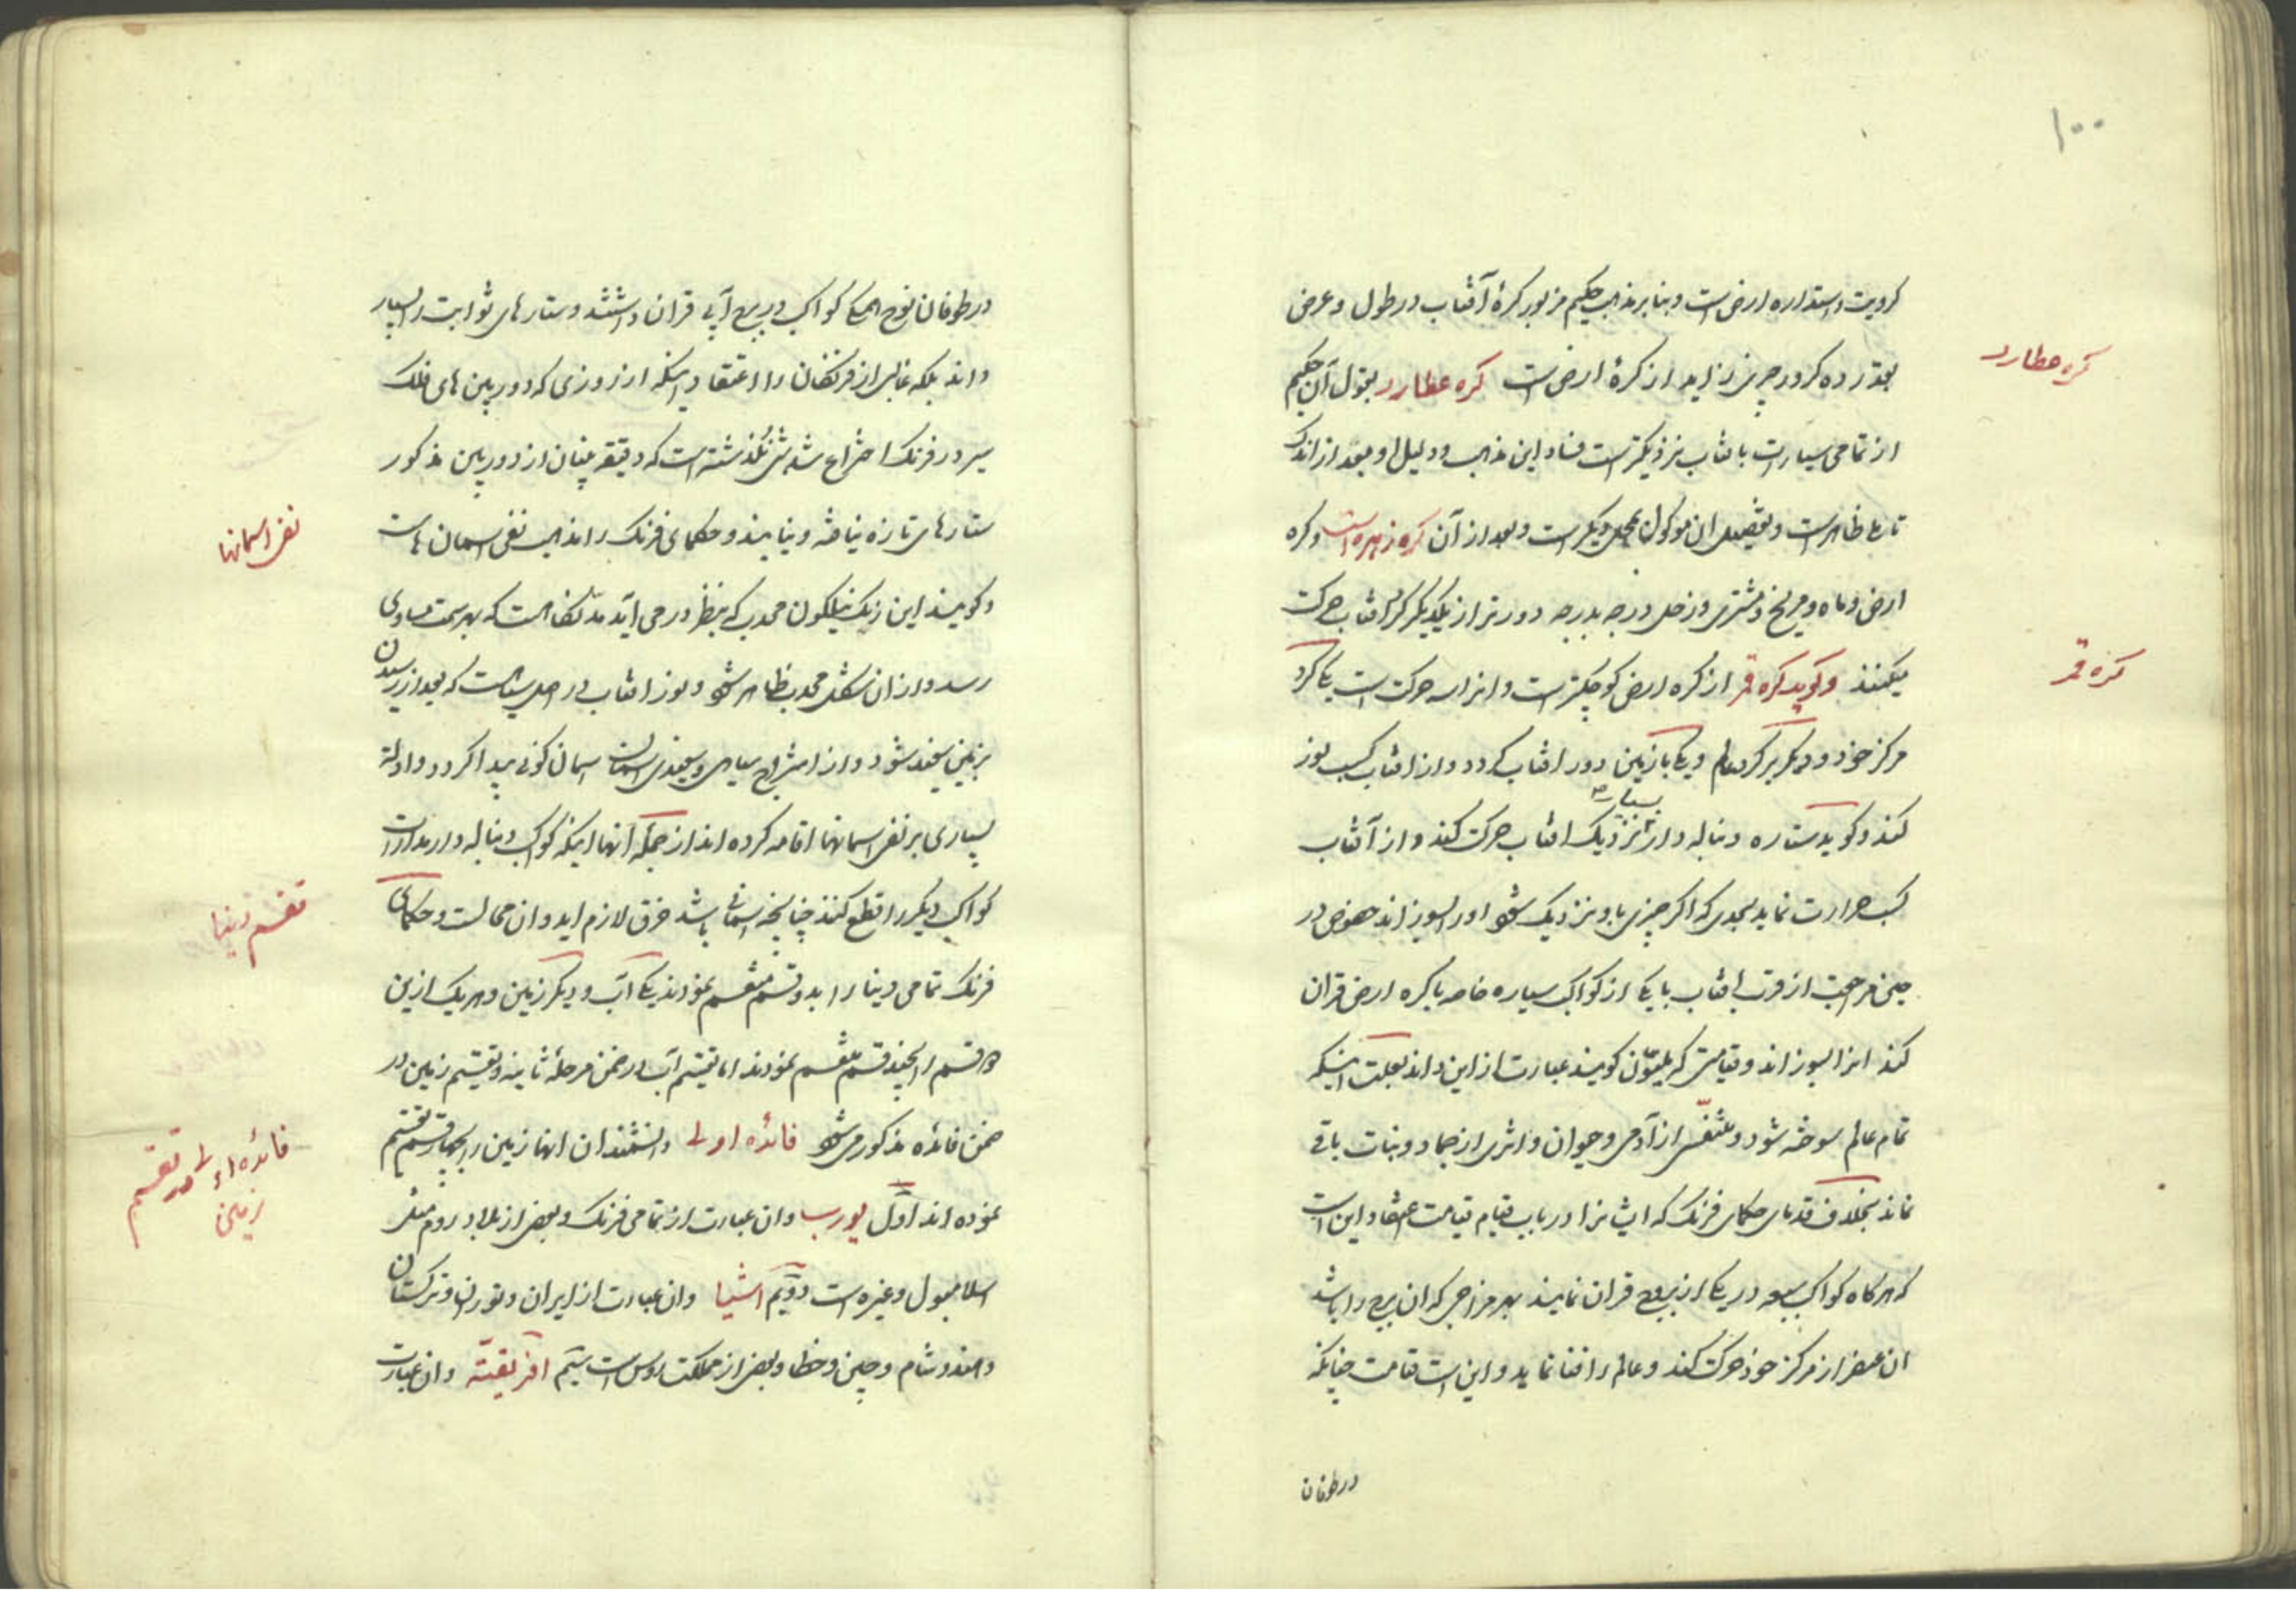 ۱۰۰
کرویت و استداره ارض است و بنابر مذهب حکیم مزبور کرهٔ آفتاب در طول و عرض
بقدر ده کرور چیزی زاید از کرهٔ ارض است کره عطارد بقول آن حکیم
کره عطارد
از تمامی سیارات بافتاب نزدیکتر است فساد این مذهب و دلیل او بعد از اندک
تامل ظاهر است و تفصیل آن موکول بمحل دیگر است و بعد از آن کره زهره است و کره
ارض و ماه و مریخ و مشتری و زحل درجه بدرجه دورتر از یکدیگر گرد افتاب حرکت
میکنند و گوید کره قمر از کره ارض کوچکتر است و انرا سه حرکت است یکی گرد
کره قمر
مرکز خود و دیگر بر گرد عالم و یکی بازمین دور افتاب گردد و از افتاب کسب نور
کند و گوید ستاره دنباله دار بنزدیک افتاب حرکت کند و از آفتاب
بسیار
کسب حرارت نماید بحدی که اگر چیزی باو نزدیک شود اورا بسوزاند خصوص در
حین مراجعت از قرب افتاب با یکی از کواکب سیاره خاصه با کره ارض قران
کند انرا بسوزاند و قیامتی که ملیون گویند عبارت از این داند بعلت اینکه
تمام عالم سوخته شود و متنفسی از آدمی و حیوان و اثری از جماد و نبات باقی
نماند بخلاف قدمای حکمای فرنک که ایشانرا در باب قیام قیامت اعتقاد این است
که هرگاه کواکب سبعه در یکی از بروج قران نمایند بهر مزاجی که ان برج را باشد
ان عنصر از مرکز خود حرکت کند و عالم را فنا نماید و این است قیامت چنانکه
در طوفان
در طوفان نوح جمیع کواکب در برج آبی قران داشتند و ستارهای ثوابت را بسیار
داند بلکه غالبی از فرنگان را اعتقاد اینکه از روزی که دوربین های فلک
سیر در فرنک اختراع شد شبی نگذشته است که دقیقه بینان از دوربین مذکور
ستارهای تازه نیافته و نیابند و حکمای فرنک را مذهب نفی اسمان هاست
نفی اسمانها
و گویند این رنک نیلگون محدب که بنظر در می اید مد نگاه است که بهر سمت مساوی
رسد و از ان شکل محدب ظاهر شود و نور افتاب در اصل سیاه است که بعد از رسیدن
بزمین سفید شود و از امتزاج سیاهی و سفیدی اسمان گونی پیدا گردد و ادله
بسیاری بر نفی اسمانها اقامه کرده اند از جمله انها اینکه کواکب دنباله دار مدارات
کواکب دیگر را قطع کنند چنانچه اسمانی باشد خرق لازم اید و ان محالست و حکمای
تقسیم دنیا
فرنک تمامی دنیا را بدو قسم منقسم نمودند یکی آب و دیگر زمین و هر یک ازین
دو قسم را بچند قسم منقسم نمودند اما تقسیم آب در ضمن مرحلهٔ ثانیه و تقسیم زمین در
ضمن فائده مذکور می شود فائده اولی دانشمندان انها زمین را بچهار قسم تقسیم
فائده اولی در تقسیم
زمین
نموده اند اوّل یورپ و ان عبارت از تمامی فرنک و بعضی از بلاد روم مثل
اسلامبول و غیره است دوّیم اسّیا و ان عبارت از ایران و توران و ترکستان
و هند و شام و چین و خطا و بعضی از مملکت روس است سیّم افریقیّه و ان عبارت